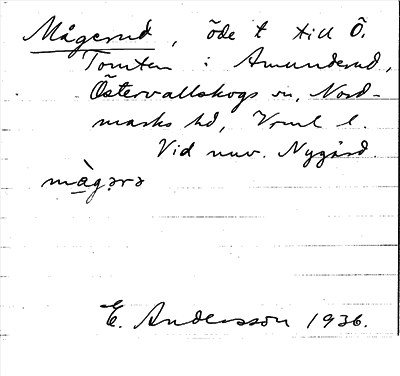 Mågerud, öde t till Ö.
Tomten i Amunderud,
Östervallskogs sn, Nord-
marks hd, Vrml l.
Vid nuv. Nygård.
mὰgərə
E. Andersson 1936.